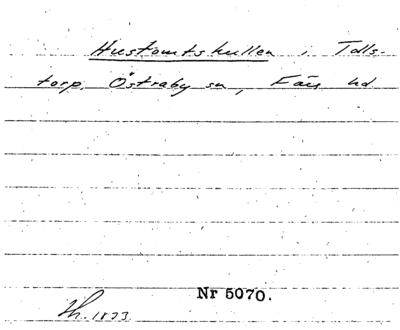 Hustomtskullen i Tolls-
torp. Östraby sn, Färs hd
Nr 5070.
Th. 1833